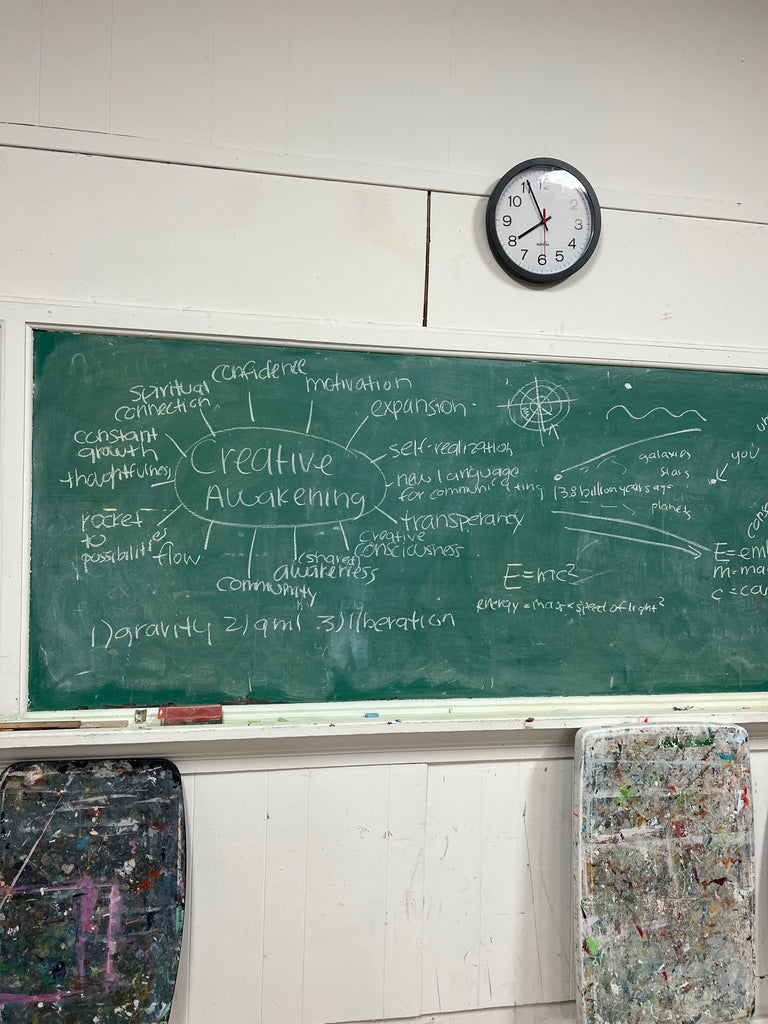 12
1
2
3
4
5
6
7
8
9
10
11
confidence
motivation
spiritual
connection
expansion
constant
growth
self-realization
thoughtfulness
Creative
Awakening
new language
for communicating
rocket
to
possibilities
transperancy
flow
creative
consciousness
(shared)
awareness
community
1) gravity 2) qml 3) liberation
galaxies
stars
13.8 billion years ago
planets
you
E=mc2
energy = mass x speed of light2
E=em
m=ma
c=ca